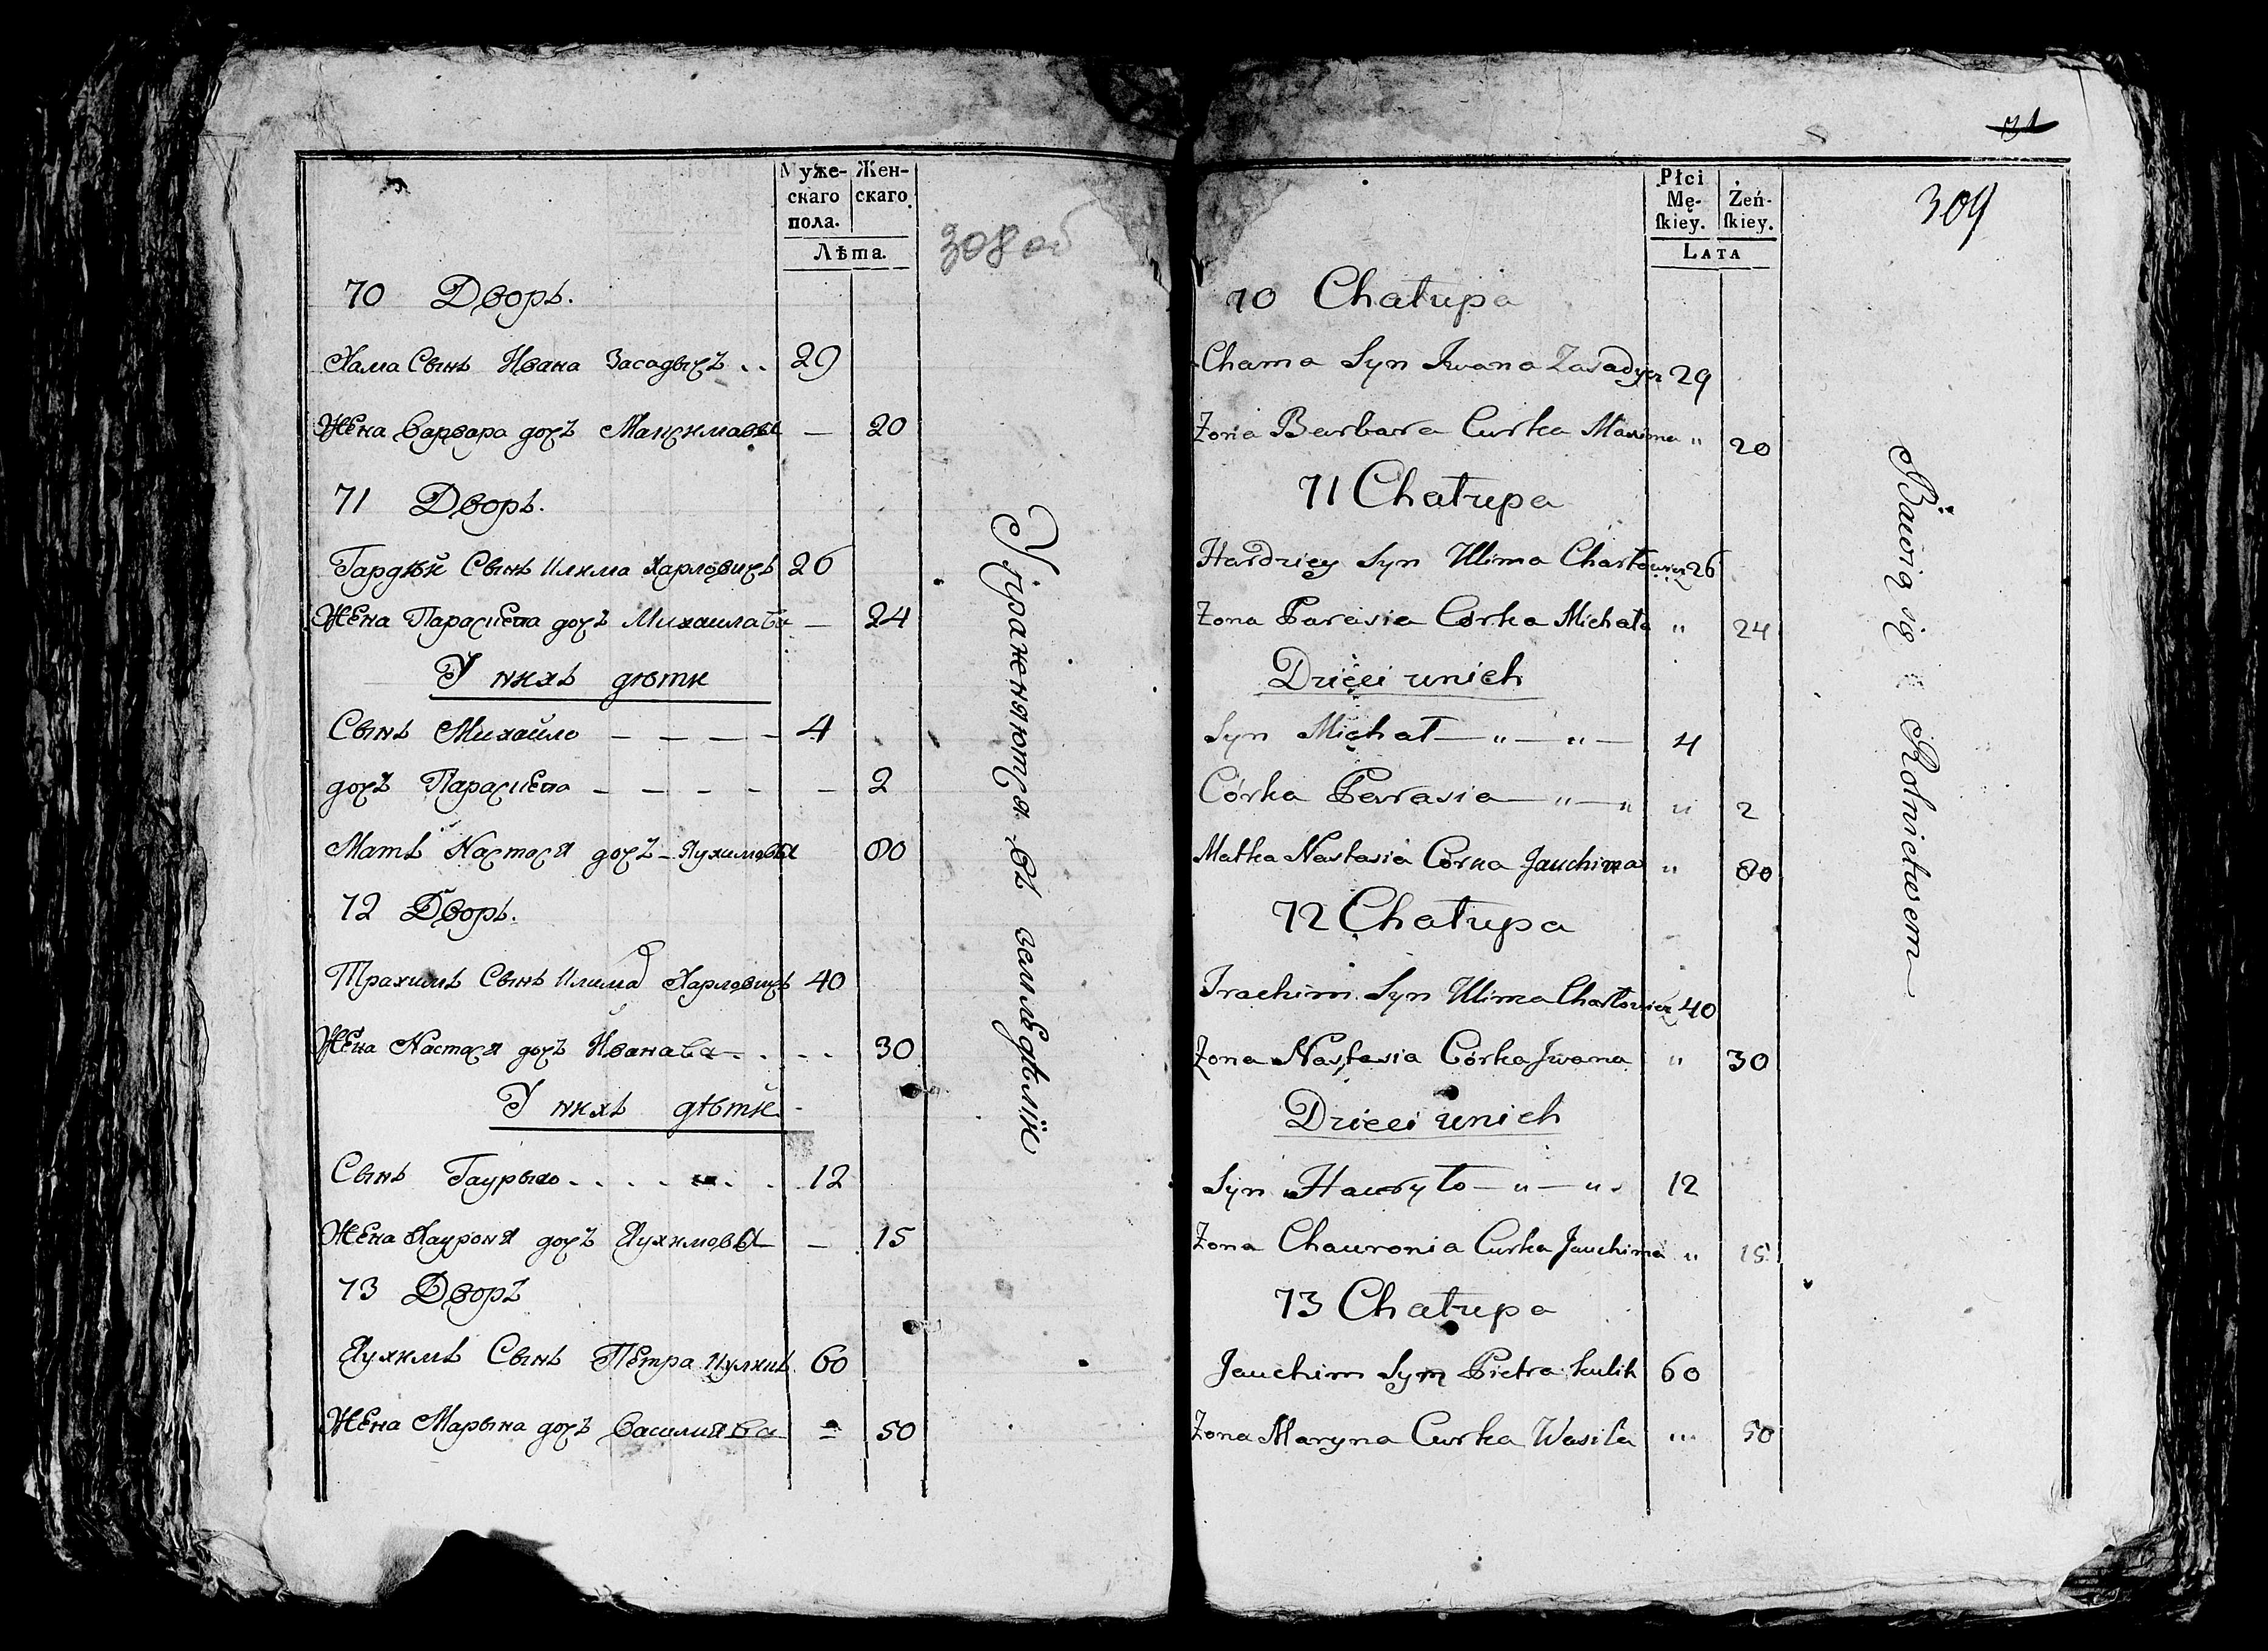 Муже-
скаго
пола.
Жен-
скаго
Лѣта.
308 об
70 Дворъ.
Хама Сынъ Ивана Засадычъ .. 29
Жена Варвара дочъ Максимава — 20
71 Дворъ.
Гардѣй Сынъ Илима Харловичъ 26
Жена Параскева дочъ Михаилава — 24
У нихъ дѣти
Сынъ Михайло — — — — 4
дочъ Параскева — — — — — 2
Мать Настася дочъ — Яухимовы 80
72 Дворъ.
Трахимъ Сынъ Илима Харловичъ 40
Жена Настася дочъ Иванава . . . . 30
У нихъ дѣти
Сынъ Гаурыло . . . . . . 12
Жена Хауроня дочъ Яухимовы — 15
73 Дворъ
Яухимъ Сынъ Петра Куликъ 60
Жена Марына дочъ Василиява = 50
Упражняются въ земледѣліи
Płci
Mę-
ſkiey.
Żeń-
ſkiey.
LATA
309
70 Chałupa
Chama Syn Iwana Zasadycz 29
Żona Barbara Curka Maxima " 20
71 Chałupa
Hardziey Syn Ulima Charłowicz 26
Żona Parasia Córka Michała " 24
Dzieci unich
Syn Michał — " — " — 4
Córka Parasia — " — " " 2
Matka Nastasia Córka Jauchima " 80
72 Chałupa
Trachim Syn Ulima Charłowicz 40
Żona Nastasia Córka Jwana " 30
Dzieci unich
Syn Hauryło — " — " . 12
Żona Chauronia Curka Jauchima " 15
73 Chałupa
Jauchim Syn Pietra Kulik 60
Żona Maryna Curka Wasila " 50
Bawią się Rolnictwem